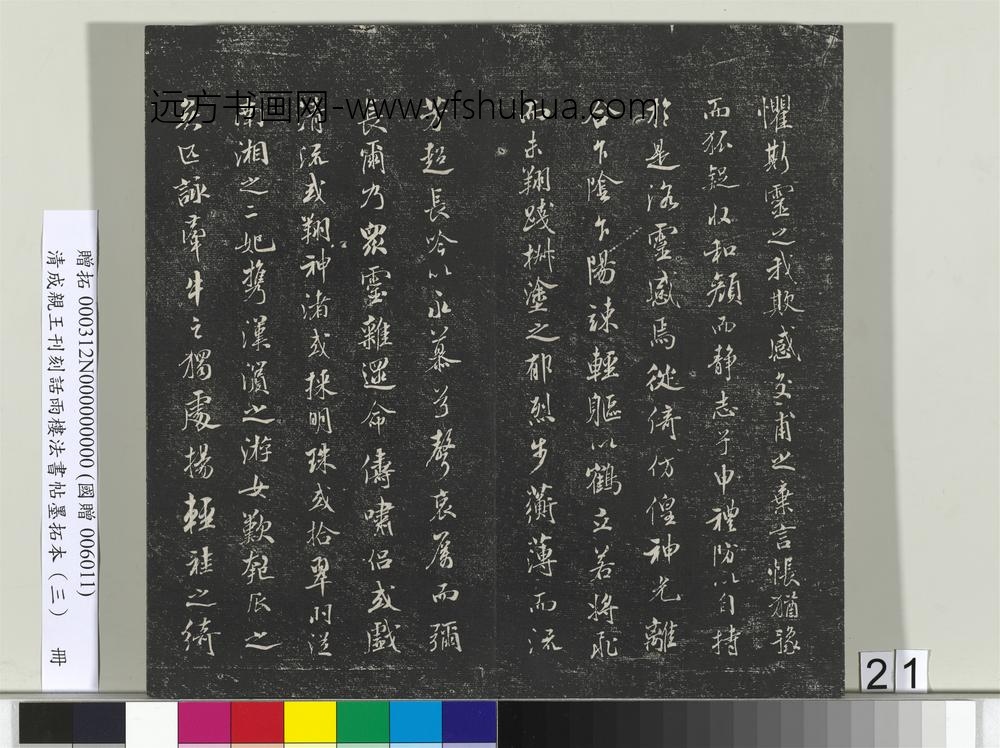 懼斯靈之我欺感交甫之棄言悵猶豫
而狐疑收和顏而靜志兮申禮防以自持
於是洛靈感焉徙倚仿偟神光離
合乍陰乍陽竦輕軀以鶴立若將飛
而未翔踐椒塗之郁烈步蘅薄而流
芳超長吟以永慕兮聲哀厲而彌
長爾乃眾靈雜遝命儔嘯侶或戲
清流或翔神渚或採明珠或拾翠羽從
南湘之二妃攜漢濱之游女歎匏瓜之
無匹詠牽牛之獨處揚輕袿之綺
远方书画网-www.yfshuhua.com
贈拓 000312N000000000(國贈 006011)
清成親王刊刻話雨樓法書帖墨拓本(三) 冊
21